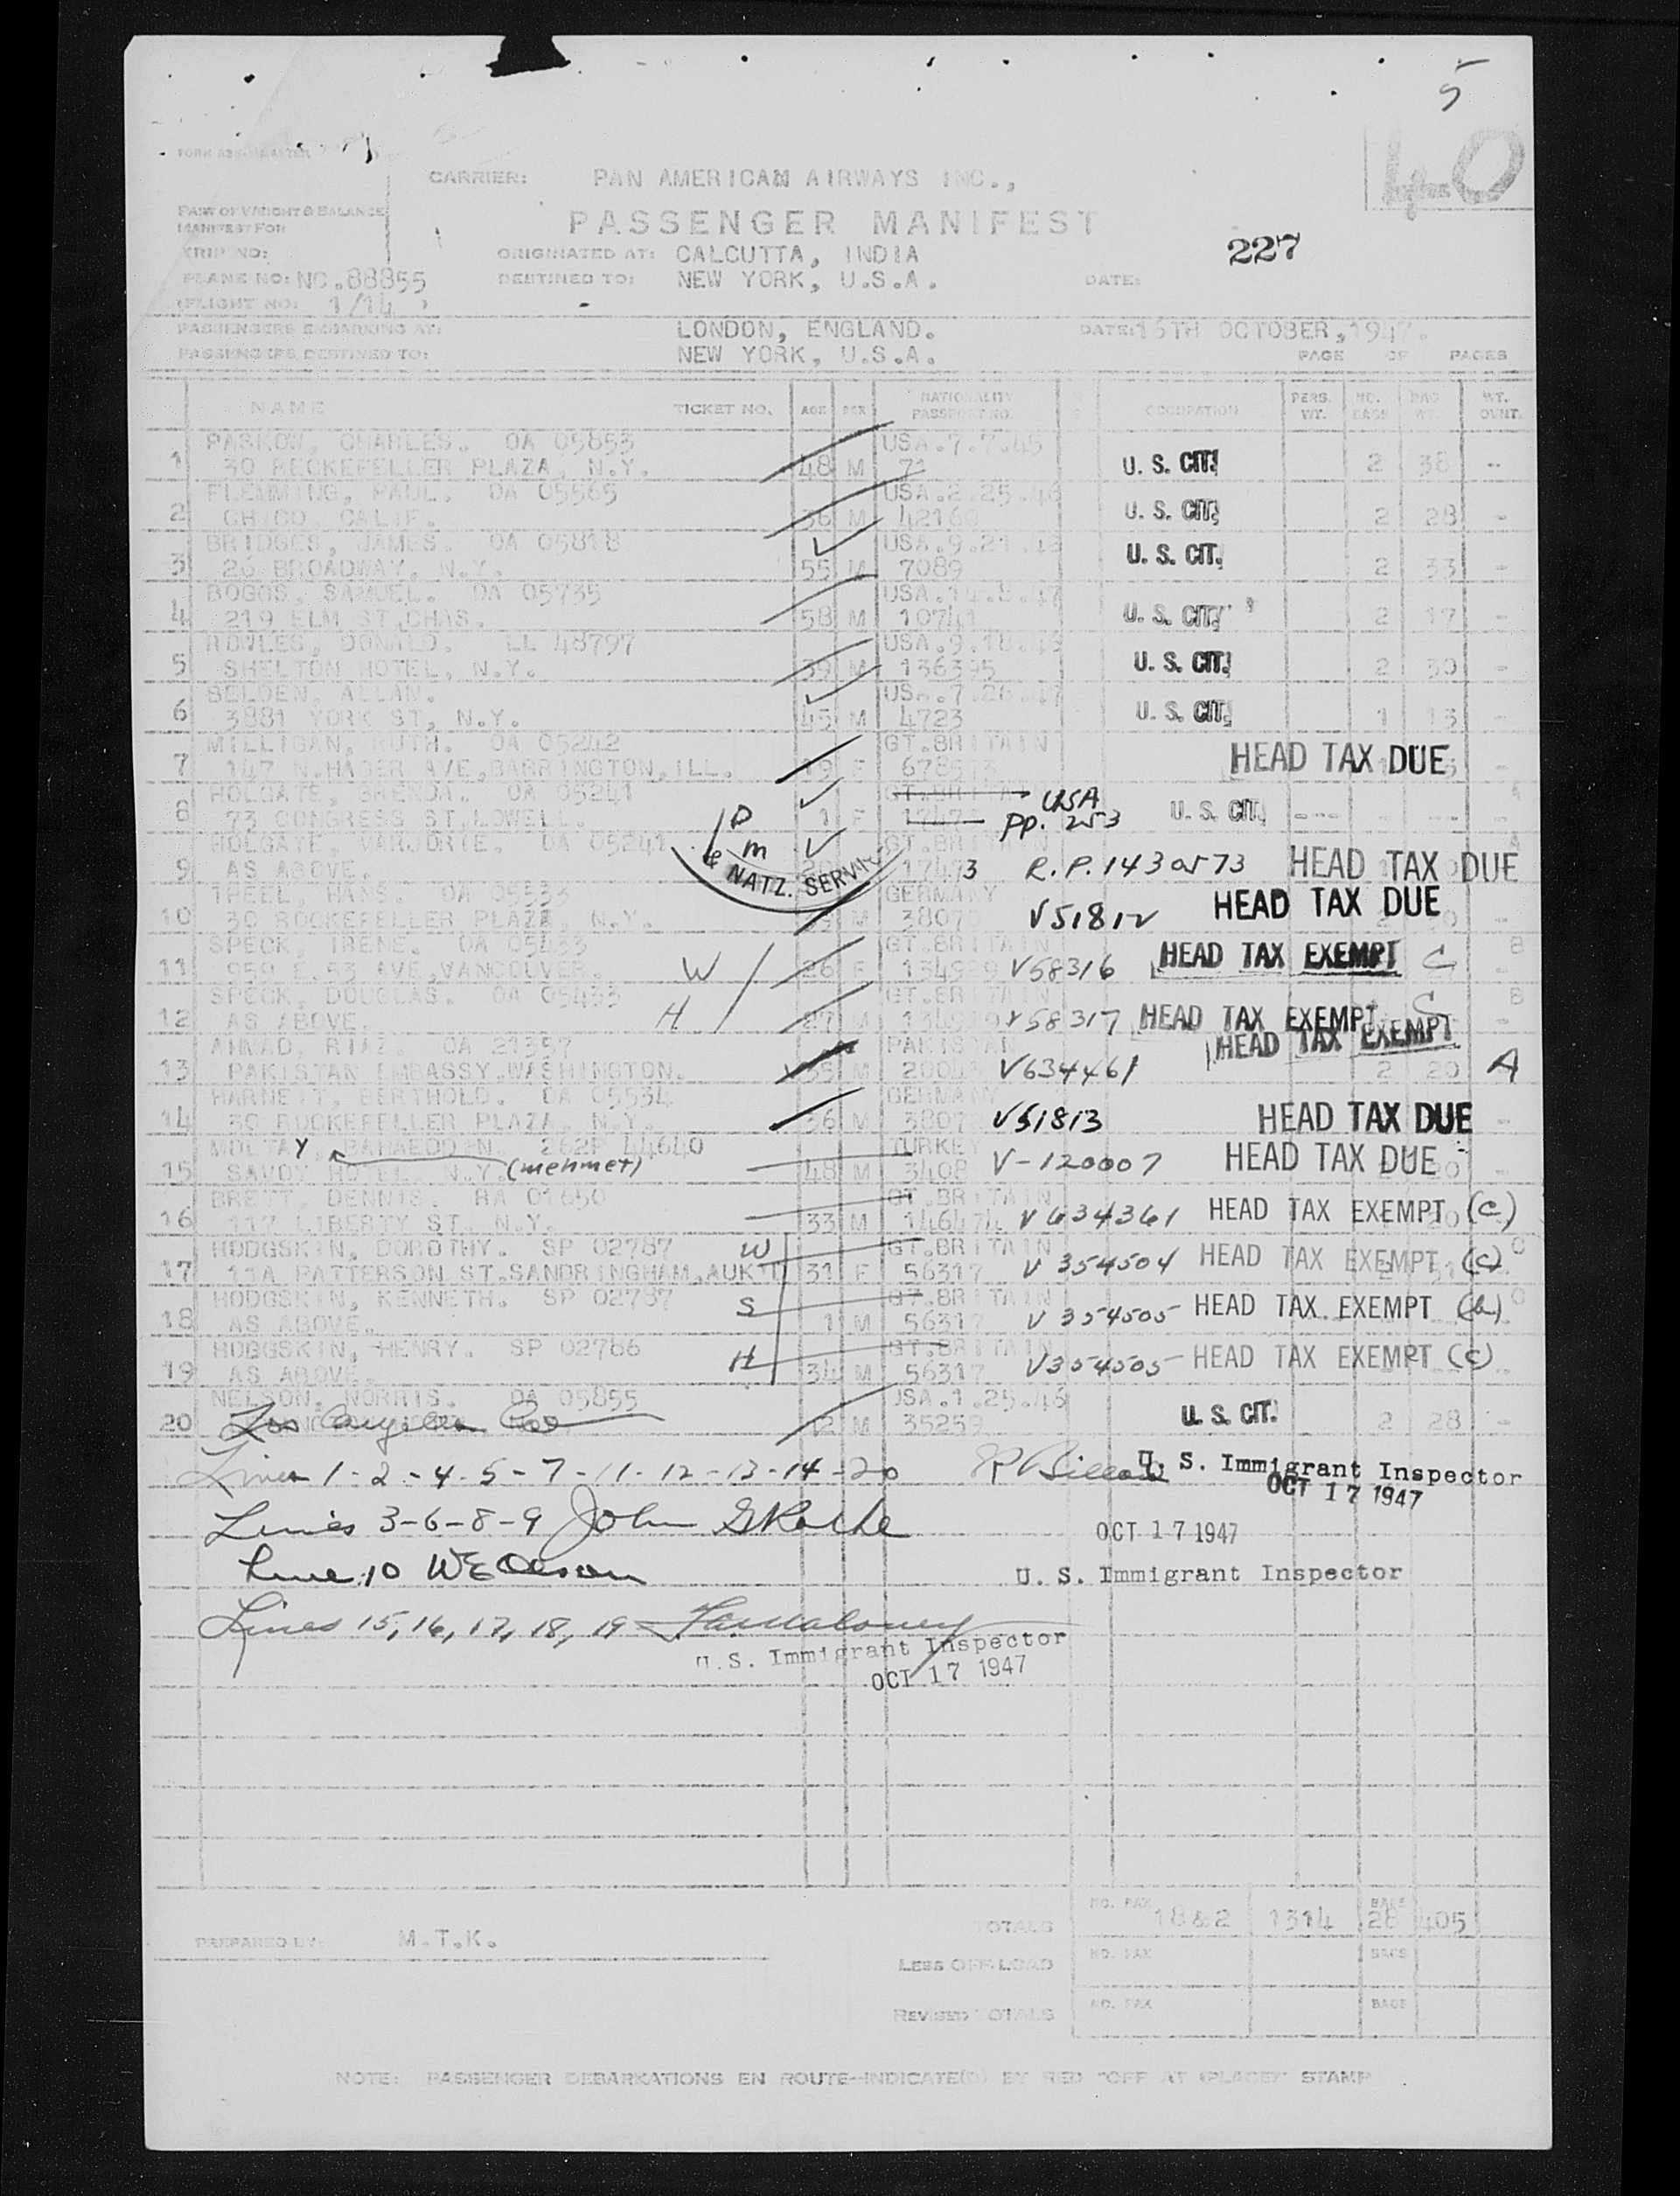 5
CARRIER: PAN AMERICAN AIRWAYS INC.,
PART OF WEIGHT & BALANCE
MANIFEST FOR
PASSENGER MANIFEST
227
TRIP NO: ORIGINATED AT: CALCUTTA, INDIA
PLANE NO: NC.88855 DESTINED TO: NEW YORK, U.S.A. DATE:
(FLIGHT NO: 1/14 )
PASSENGERS EMBARKING AT: LONDON, ENGLAND. DATE: OCTOBER, 1947.
PASSENGERS DESTINED TO: NEW YORK, U.S.A. PAGE OF PAGES
NAME TICKET NO. AGE SEX NATIONALITY PASSPORT NO. OCCUPATION PERS. WT. NO. BAGS BAG WT. WT. OVNT.
PASKOW, CHARLES. OA 05853 USA.7.7.45
1 30 ROCKEFELLER PLAZA, N.Y. 48 M U. S. CIT. 2 38 -
FLEMMING, PAUL. OA 05565 USA.2.25.46
2 CHICO, CALIF. 36 M 42160 U. S. CIT. 2 28 -
BRIDGES, JAMES. OA 05818 USA.9.21.46
3 26 BROADWAY, N.Y. 55 M 7089 U. S. CIT. 2 33 -
BOGGS, SAMUEL. OA 05735
4 219 ELM ST. CHAS. 58 M 10741 U. S. CIT. 2 17 -
DONALD. LL 48797 USA.9.18.46
5 SHELTON HOTEL, N.Y. 39 M 136395 U. S. CIT. 2 30 -
BELDEN, ALLAN. USA.7.26.47
6 3881 YORK ST, N.Y. 45 M 4723 U. S. CIT. 1 13 -
MILLIGAN, RUTH. OA 05242 GT.BRITAIN
7 147 N.HAGER AVE, BARRINGTON, ILL. 19 F HEAD TAX DUE -
HOLGATE, BRENDA. OA 05241 USA
8 73 CONGRESS ST, LOWELL. 1 F pp. 253 U. S. CIT. ---
HOLGATE, MARJORIE. OA 05241 GT.BRITAIN
9 AS ABOVE. 17473 R.P. HEAD TAX DUE
NATZ. SERVICE
THEEL, HANS. OA 05533 GERMANY
10 30 ROCKEFELLER PLAZA, N.Y. M 38070 V51812 HEAD TAX DUE
SPECK, IRENE. OA 05433 GT.BRITAIN B
11 959 E.53 AVE, VANCOUVER. W 26 F V58316 HEAD TAX EXEMPT C
SPECK, DOUGLAS. OA 05433 GT.BRITAIN B
12 AS ABOVE. H 27 M V58317 HEAD TAX EXEMPT C
AHMAD, RIAZ. OA 21357 PAKISTAN HEAD TAX EXEMPT
13 PAKISTAN EMBASSY, WASHINGTON. M V634461 2 20 A
HARNETT, BERTHOLD. OA 05534 GERMANY
14 30 ROCKEFELLER PLAZA, N.Y. 36 M 3807 V51813 HEAD TAX DUE -
MOLTAY, BAHAEDDIN. 262P 44640 TURKEY
15 SAVOY HOTEL, N.Y. (mehmet) 48 M 3408 V-120007 HEAD TAX DUE
BRETT, DENNIS. RA 01650 GT.BRITAIN
16 117 LIBERTY ST, N.Y. 33 M 146474 V634361 HEAD TAX EXEMPT (C)
HODGSKIN, DOROTHY. SP 02787 W GT.BRITAIN
17 11A PATTERSON ST. SANDRINGHAM, AUK'D 31 F 56317 V 354504 HEAD TAX EXEMPT (C)
HODGSKIN, KENNETH. SP 02787 S GT.BRITAIN
18 AS ABOVE. 1 M 56317 V 354505 HEAD TAX EXEMPT
HODGSKIN, HENRY. SP 02786 H GT.BRITAIN
19 AS ABOVE. 34 M 56317 V354505 HEAD TAX EXEMPT (C)
NELSON, NORRIS. OA 05855 USA.1.25.46
20 Los Angeles M 35259 U. S. CIT. 2 28 -
Lines 1-2-4-5-7-11-12-13-14-20 U. S. Immigrant Inspector
OCT 17 1947
Lines 3-6-8-9 John OCT 17 1947
Line 10 U. S. Immigrant Inspector
Lines 15, 16, 17, 18, 19
U.S. Immigrant Inspector
OCT 17 1947
TOTALS NO. PAX 18&2 1314 BAGS 28 405
PREPARED BY: M.T.K.
LESS OFF-LOAD NO. PAX BAGS
REVISED TOTALS NO. PAX BAGS
NOTE: PASSENGER DEBARKATIONS EN ROUTE-INDICATE(D) BY RED "OFF AT (PLACE)" STAMP